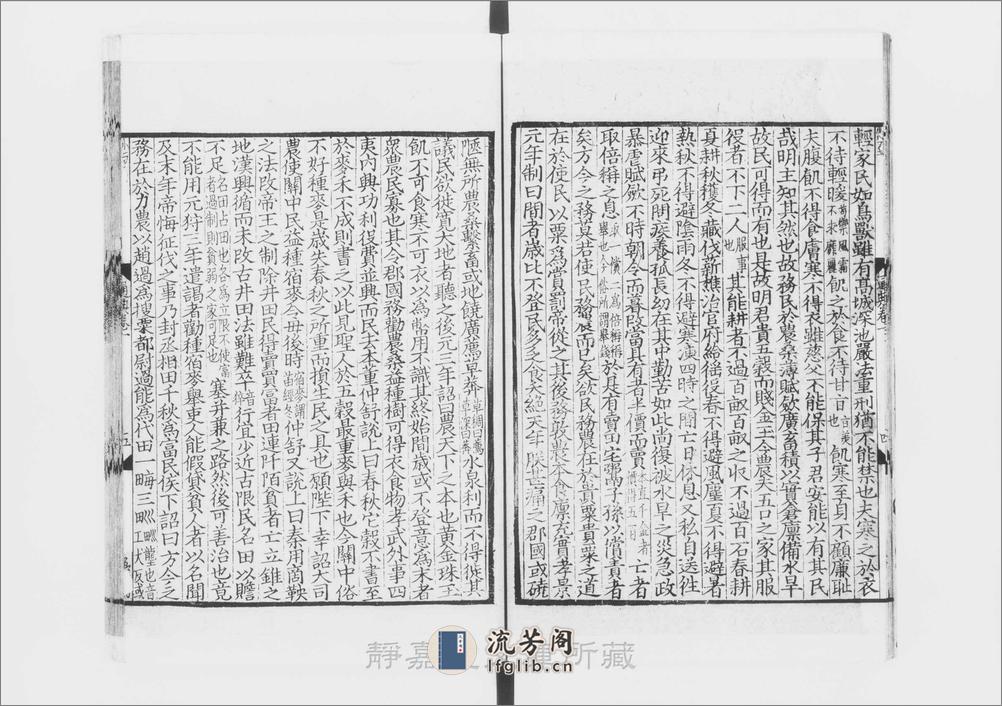 輕家民如鳥獸雖有高城深池嚴法重刑猶不能禁也夫寒之於衣
不待輕暖飢之於食不待甘旨飢寒至身不顧廉恥
夫腹飢不得食膚寒不得衣雖慈父不能保其子君安能以有其民
哉明主知其然也故務民於農桑薄賦斂廣畜積以實倉廩備水旱
故民可得而有也是故明君貴五穀而賤金玉今農夫五口之家其服
役者不下二人服事也其能耕者不過百畝百畝之收不過百石春耕
夏耕秋穫冬藏伐薪樵治官府給徭役春不得避風塵夏不得避暑
熱秋不得避陰雨冬不得避寒凍四時之間亡日休息又私自送往
迎來弔死問疾養孤長幼在其中勤苦如此尚復被水旱之災急政
暴虐賦斂不時朝令而暮改當具有者半價而賣亡者
取倍稱之息於是有賣田宅鬻子孫以償責者
矣方今之務莫若使民務農而已矣欲民務農在於貴粟貴粟之道
在於使民以粟為賞罰帝從之其後務敦農本食廩充實孝景
元年制曰間者歲比不登民多乏食夭絕天年朕甚痛之郡國或磽
陿無所農桑繫畜或地饒廣薦草莽水泉利而不得徙其
議民欲徙寬大地者聽之後元三年詔曰農天下之本也黃金珠玉
飢不可食寒不可衣以為幣用不識其終始間歲或不登意為末者
衆農民寡也其令郡國務勸農桑益種樹可得衣食物孝武外事四
夷内興功利役費並興而民去本董仲舒說上曰春秋它穀不書至
於麥禾不成則書之以此見聖人於五穀最重麥與禾也今關中俗
不好種麥是歲失春秋之所重而損生民之具也願陛下幸詔大司
農使關中民益種宿麥令毋後時仲舒又說上曰秦用商鞅
之法改帝王之制除井田民得賣買富者田連阡陌貧者亡立錐之
地漢興循而未改古井田法雖難卒行宜少近古限民名田以贍
不足塞并兼之路然後可善治也竟
不能用元狩三年遣謁者勸種宿麥舉吏人能假貸貧人者以名聞
及末年帝悔征伐之事乃封丞相田千秋為富民侯下詔曰方今之
務在於力農以趙過為搜粟都尉過能為代田一畮三甽
五
靜嘉 所藏
流芳阁
lfglib.cn